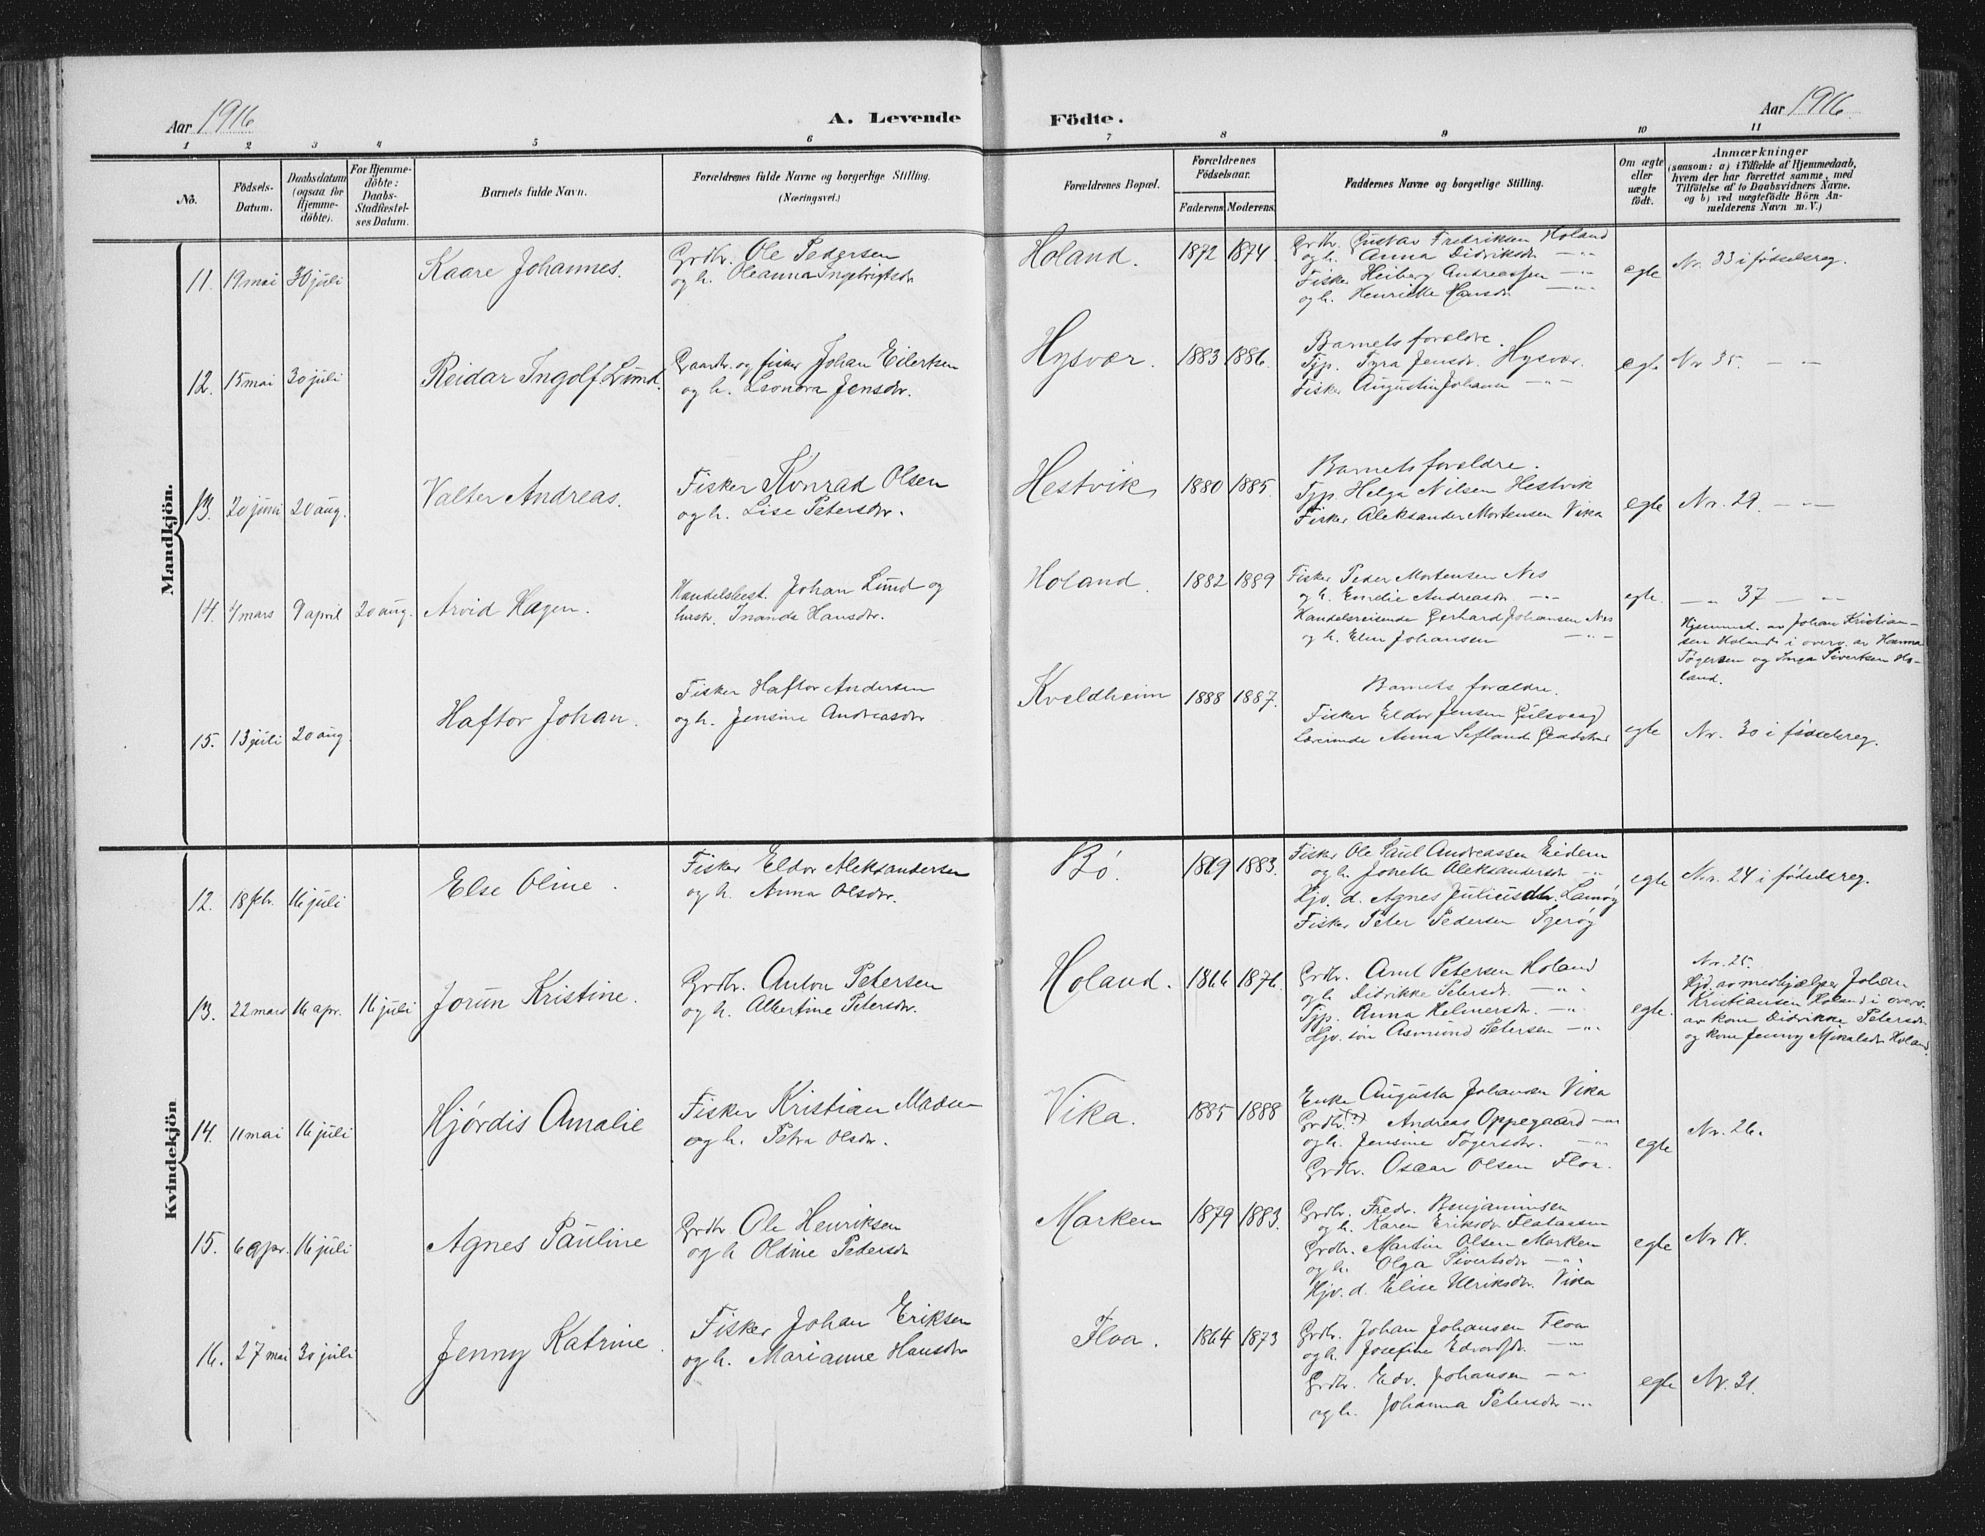 Aar 1916 A. Levende Födte. Aar 1916
1 2 3 4 5 6 7 8 9 10 11
No.
Födsels-Datum.
Daabsdatum (ogsaa for Hjemme-döbte).
For Hjemme-döbte: Daabs-Stadfæstel-ses Datum.
Barnets fulde Navn.
Forældrenes fulde Navne og borgerlige Stilling. (Næringsvei.)
Forældrenes Bopæl.
Forældrenes Födselsaar.
Faderens. Moderens.
Faddernes Navne og borgerlige Stilling.
Om ægte eller uægte födt.
Anmærkninger
(saasom: a) i Tilfælde af Hjemmedaab,
hvem der har forrettet samme, med
Tilföielse af to Daabsvidners Navne.
og b) ved uægtefödte Börn An-
melderens Navn m. V.)
Mandkjön.
11. 19 mai 30 juli Kaare Johannes.
Grdbr. Ole Pedersen
og h. Oleanna Ingebrigtsdr
Holand. 1872 1874
Grdbr. Gustav Fredriksen Holand
og h. Anna Didriksdr — " —
Fisker Heiberg Andreassen — " —
og h. Henrikke Hansdr — " —
egte Nr. 33 i fødselsreg.
12. 15 mai 30 juli Reidar Ingolf Lund.
Gaardbr. og fisker Johan Eilertsen
og h. Leonora Jensdr.
Hysvær. 1883 1886.
Barnets forældre.
Tjp. Tyra Jensdr. Hysvær.
Fisker Augustin Johann — " —
egte Nr 35. — " —
13. 20 juni 20 aug. Valter Andreas.
Fisker Konrad Olsen
og h. Lise Petersdr.
Hestvik 1880 1885.
Barnets forældre.
Tjp. Helga Nilsen Hestvik
Fisker Aleksander Mortensen Vika
egte Nr. 29. — " —
14. 4 mars 9 april 20 aug. Arvid Hagen.
Handelsbest. Johan Lund og
hustr. Inanda Hansdr.
Holand. 1882 1889
Fisker Peder Mortensen Nes
og h. Emelie Andreasdr. — " —
Handelsreisende Gerhard Johansen Nes
og h. Elin Johansen — " —
egte. — " — 37 — " —
Hjemmed. av Johan Kristian-
sen Holand i overv. av Hanna
Tøgersen og Inga Sivertsen Ho-
land.
15. 13 juli 20 aug. Haftor Johan.
Fisker Haftor Andersen
og h. Jensine Andreasdr.
Kveldheim 1888 1887.
Barnets forældre.
Fisker Eldor Jensen Gulsvaag
Lærerinde Anna Sefland
egte Nr. 30 i fødselsreg.
Kvindekjön
12. 18 febr. 16 juli Else Oline.
Fisker Eldor Aleksandersen
og h. Anna Olsdr.
Bø. 1869 1883.
Fisker Ole Paul Andreassen Eidem
og h. Jonette Aleksandersdr — " —
Hjv. d. Agnes Juliusdtr.
Fisker Peter Pedersen Tjerøy
egte Nr. 24 i fødselsreg.
13. 22 mars 16 apr. 16 juli Jorun Kristine.
Grdbr. Anton Petersen
og h. Albertine Petersdr.
Holand. 1866 1876.
Grdbr. Arnt Petersen Holand
og h Didrikke Petersdr. — " —
Tjp. Anna Helmersdr. — " —
Hjv. søn Asmund Petersen — " —
egte.
Nr. 25.
Hjd. av medhjælper Johan
Kristiansen Holand i overv.
av kone Didrikke Petersdr
og kone Jenny Mikalsdr Holand.
14. 11 mai 16 juli Hjørdis Amalie
Fisker Kristian Madsen
og h. Petra Olsdr.
Vika. 1885 1888
Enke Augusta Johansen Vika
Grdbr. (?) Andreas Oppegaard — " —
og h. Jensine Tøgersdr. — " —
Grdbr. Oscar Olsen Floa.
egte Nr. 26.
15. 6 apr. 16 juli Agnes Pauline
Grdbr Ole Henriksen
og h Oldine Pedersdr
Marken 1879 1883.
Grdbr. Fredr. Benjaminsen
og h. Karen Eriksdr
Grdbr. Martin Olsen Marken
og h. Olga Sivertsdr — " —
Hjv. d. Elise Ulriksdr. Vika
egte Nr 14.
16. 27 mai 30 juli Jenny Katrine.
Fisker Johan Eriksen
og h. Marianne Hansdr
Floa. 1864 1873
Grdbr. Johan Johansen Floa
og h. Josefine Edvardsdr. — " —
Grdbr. Edv. Johansen — " —
og h. Johanna Petersdr — " —
egte Nr. 31.